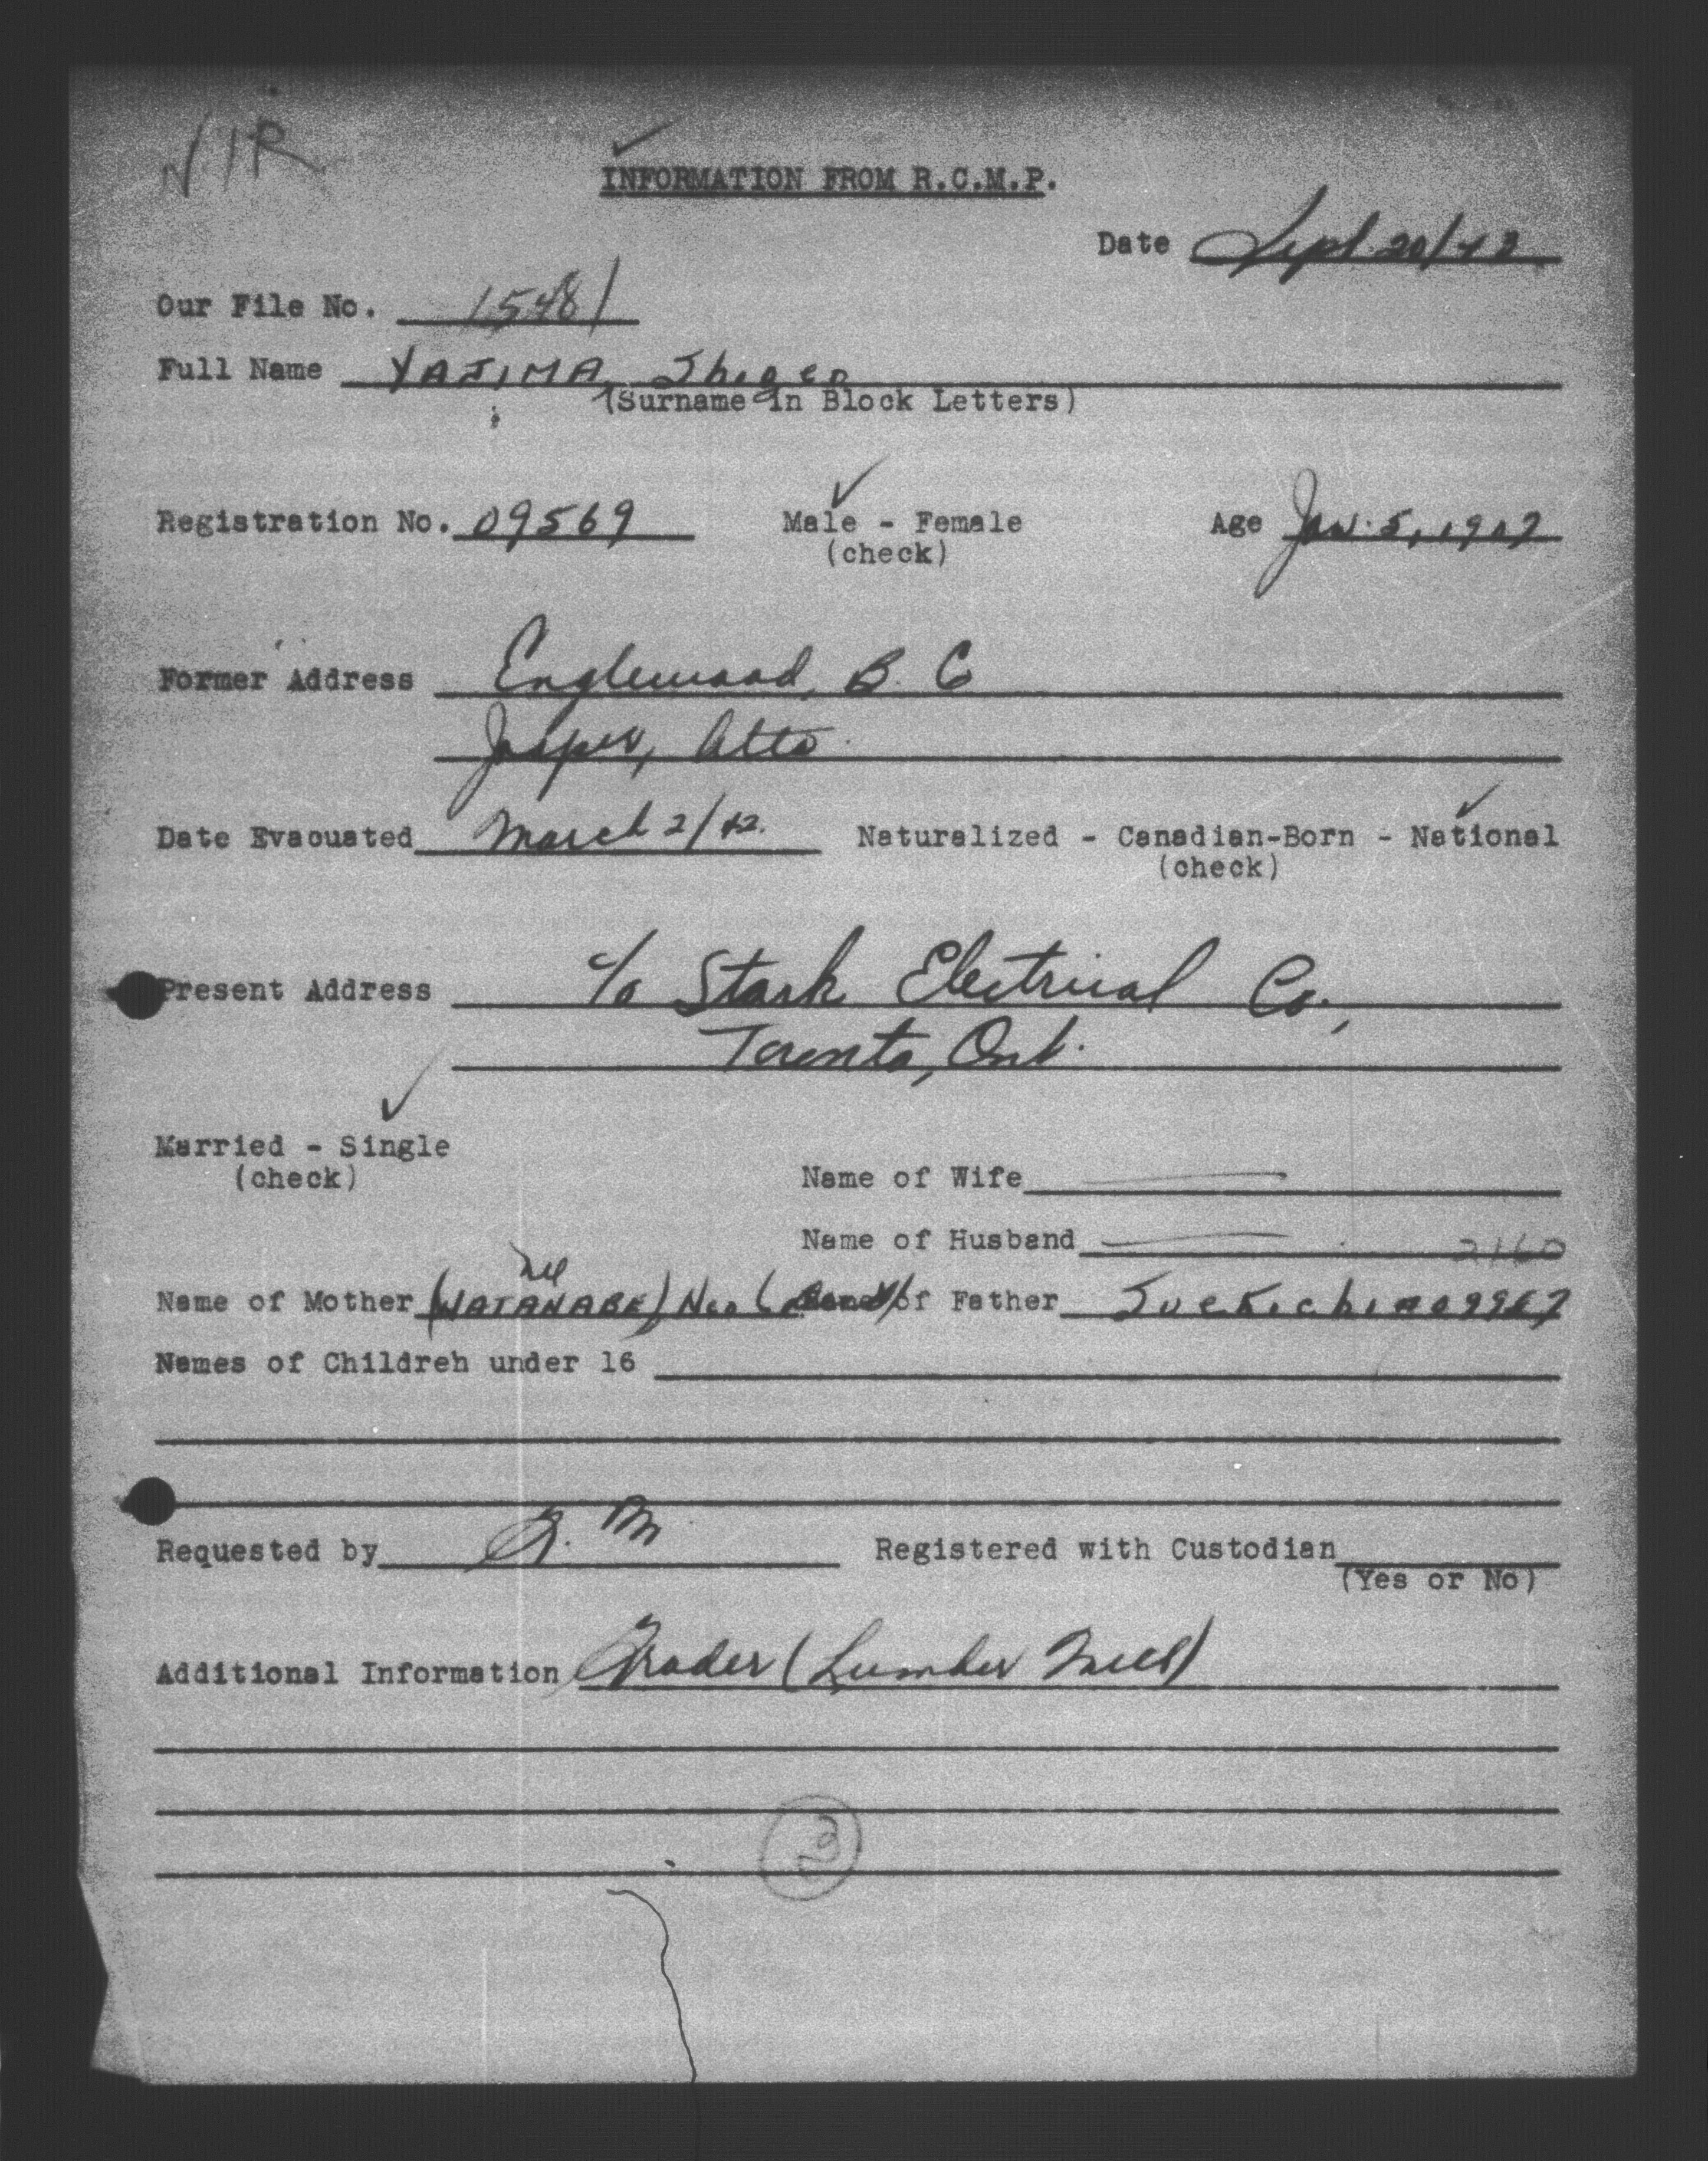 N/R
INFORMATION FROM R.C.M.P.
Date Sept. 20/43
Our File No. 15481
Full Name YAJIMA, Shigeo
(Surname in Block Letters)
Registration No. 09569 Male - Female Age Jan. 5, 1907
(check)
Former Address Englewood, B. C
Jasper, Alta.
Date Evacuated March 2/42. Naturalized - Canadian-Born - National
(check)
Present Address c/o Stark Electrical Co.,
Toronto, Ont.
Married - Single
(check)
Name of Wife
Name of Husband 2160
nee
Name of Mother (WATANABE) Name of Father
Names of Children under 16
Requested by Registered with Custodian
(Yes or No)
Additional Information Grader (Lumber Mill)
3